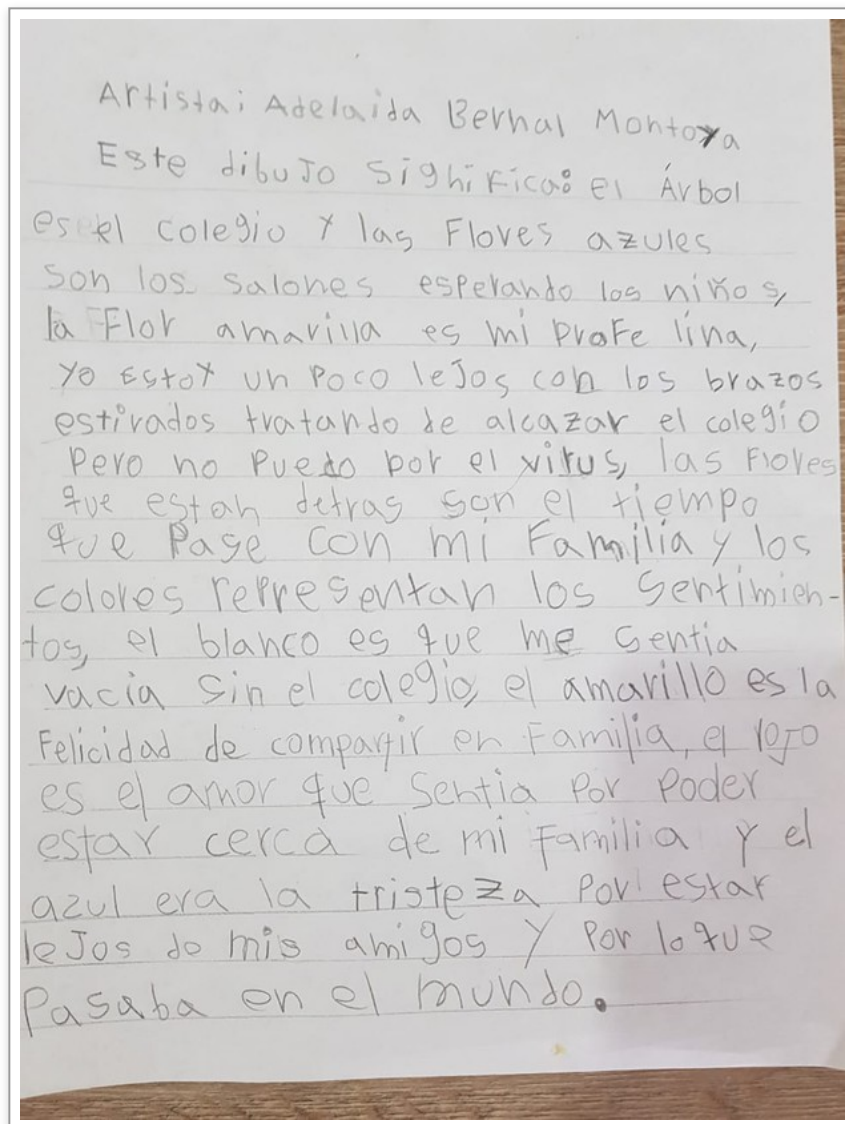 Artista: Adelaida Bernal Montoya
Este dibuJo significa: el Árbol
es el colegio y las Flores azules
son los salones esperando los niños,
la Flor amarilla es mi profe lina,
yo Estoy un Poco leJos con los brazos
estirados tratando de alcazar el colegio
Pero no Puedo por el virus, las Flores
que estan detras son el tiempo
que Pase con mi Familia y los
colores representan los Sentimien-
tos, el blanco es que me sentia
vacia sin el colegio, el amarillo es la
Felicidad de compartir en Familia, el roJo
es el amor que Sentia Por Poder
estar cerca de mi Familia y el
azul era la tristeza Por estar
leJos de mis amigos y Por lo que
Pasaba en el mundo.